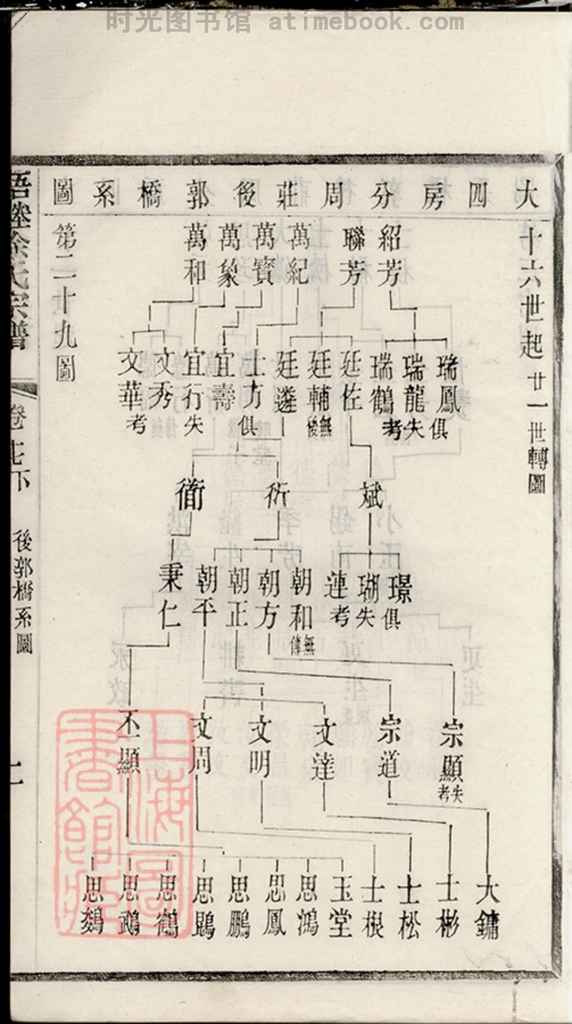 时光图书馆 atimebook.com
大四房分周莊後郭橋系圖
十六世起 廿一世轉圖
紹芳
聯芳
萬紀
萬寶
萬象
萬和
第二十九圖
瑞鳳俱
瑞龍失
瑞鶴考
廷佐
廷輔無後
廷遴
士方俱
宜壽
宜行失
文秀
文華考
斌
衎
衜
璟俱
瑚失
璉考
朝和無傳
朝方
朝正
朝平
秉仁
宗顯失考
宗道
文達
文明
文周
丕顯
大鏞
士彬
士松
士棂
玉堂
思鴻
思鳳
思鵬
思鵾
思鶴
思鵡
思鷄
梧塍徐氏宗譜
卷七下
後郭橋系圖
上海圖書館藏